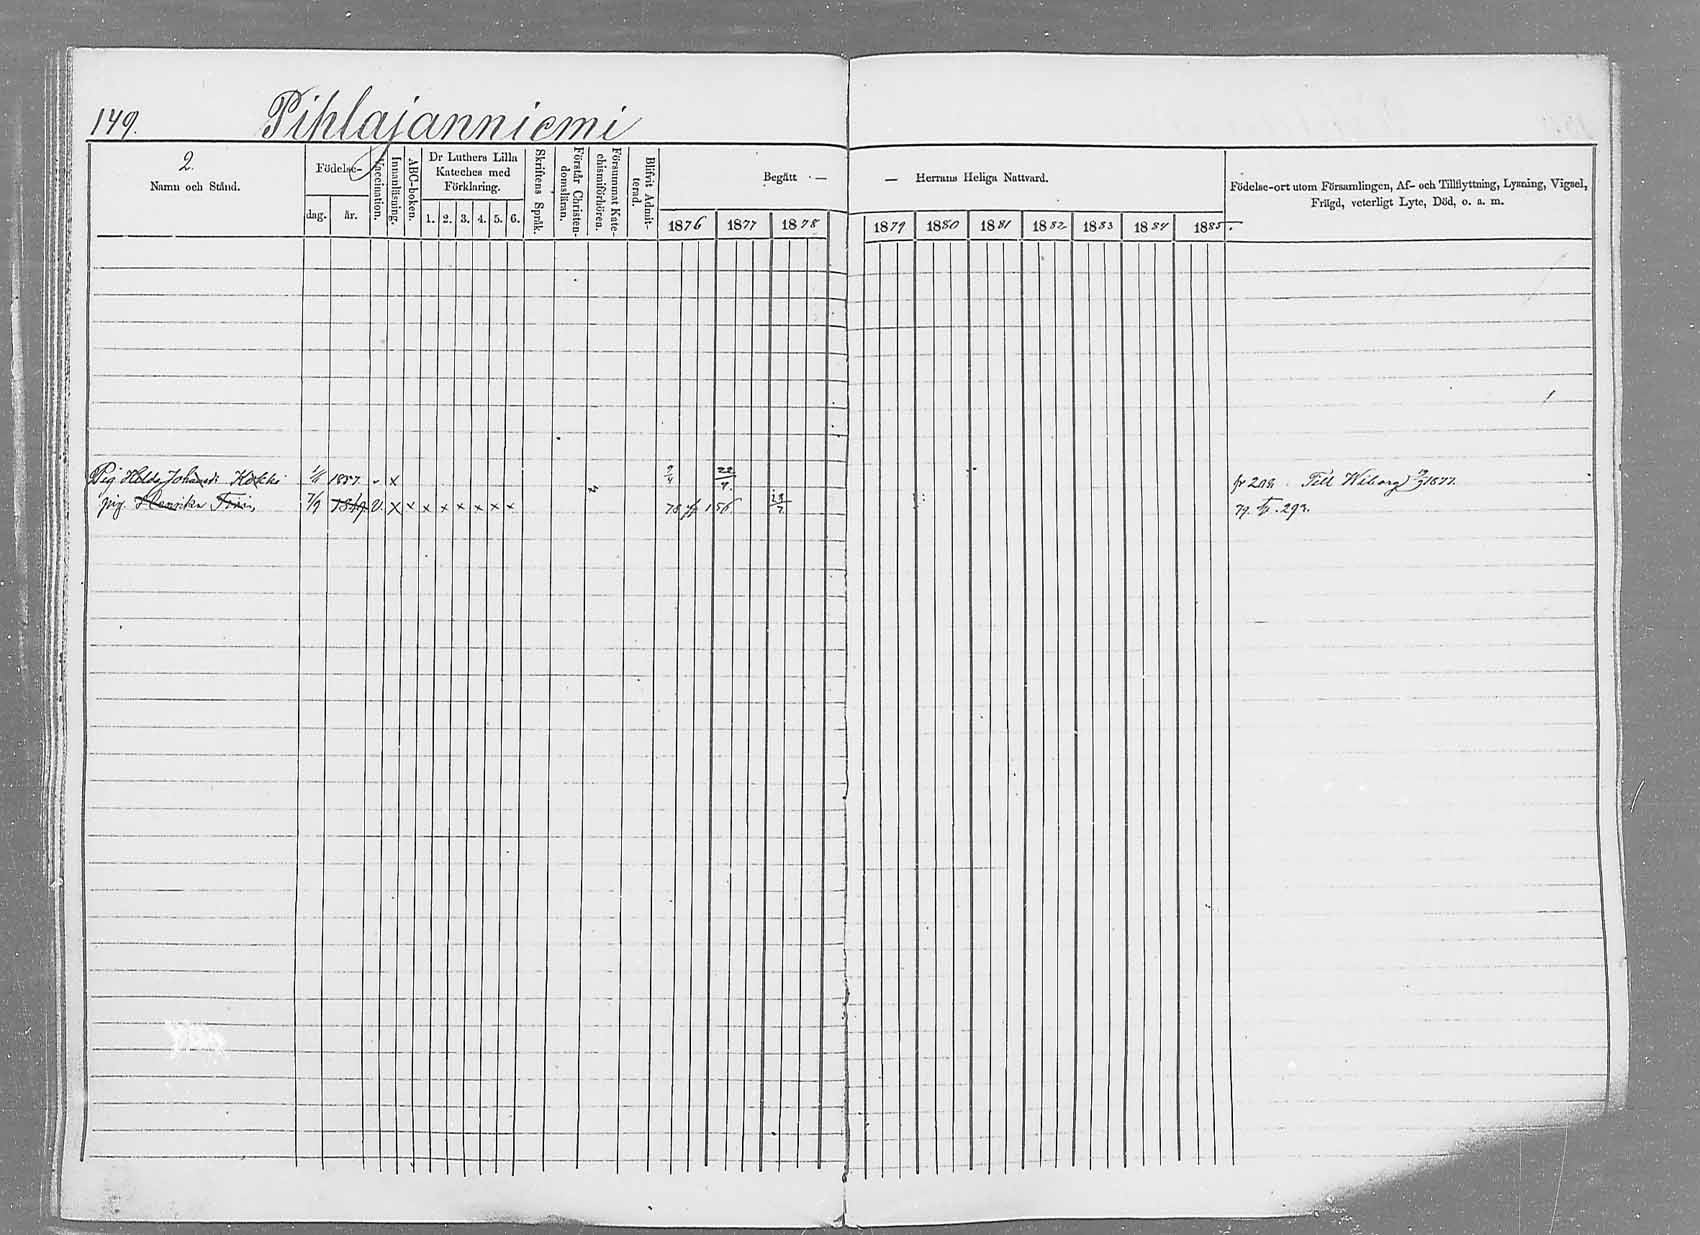 149. Pihlajanniemi
2.
Namn och Stånd.
Födelse-
dag. år.
Vaccination.
Innanläsning.
ABC-boken.
Dr Luthers Lilla
Kateches med
Förklaring.
1. 2. 3. 4. 5. 6.
Skriftens Språk.
Förstår Christen-
domsläran.
Försummat Kate-
chismiförhören.
Blifvit Admit-
terad.
Begått — — Herrans Heliga Nattvard.
1876 1877 1878 1879 1880 1881 1882 1883 1884 1885.
Födelse-ort utom Församlingen, Af- och Tillflyttning, Lysning, Vigsel,
Frägd, veterligt Lyte, Död, o. a. m.
Pig Hilda Johansdr Kokki 1857 x Till Wiborg 1877.
pig. Henrika 7/9 v. x x x x x x x x 293.